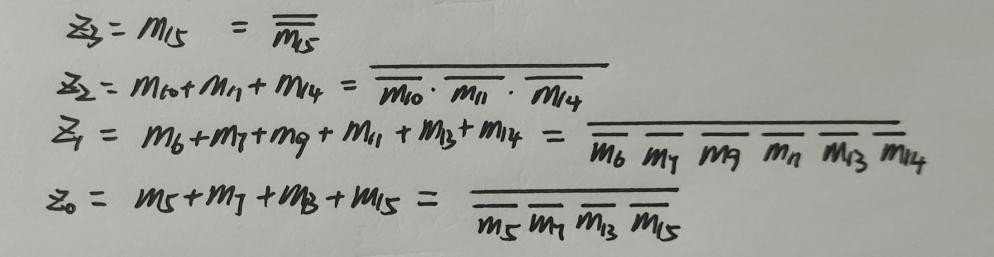 Z₃ = m₁₅ = \overline{\overline{m₁₅}}
Z₂ = m₁₀ + m₁₁ + m₁₄ = \overline{\overline{m₁₀} · \overline{m₁₁} · \overline{m₁₄}}
Z₁ = m₆ + m₇ + m₉ + m₁₁ + m₁₃ + m₁₄ = \overline{\overline{m₆} \overline{m₇} \overline{m₉} \overline{m₁₁} \overline{m₁₃} \overline{m₁₄}}
Z₀ = m₅ + m₇ + m₁₃ + m₁₅ = \overline{\overline{m₅} \overline{m₇} \overline{m₁₃} \overline{m₁₅}}